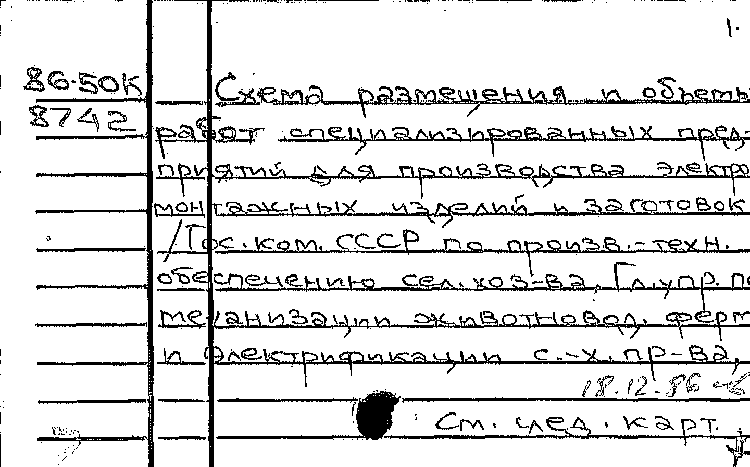 1.
86-50К
8742
Схема размещения и объемы
работ специализированных пред-
приятий для производства электро
монтажных изделий и заготовок
/Гос.ком. СССР по произв.-техн.
обеспечению сел.хоз-ва, Гл.упр. по
механизации животновод. ферм
и электрификации с.-х. пр-ва,
18.12.86
См. след. карт.